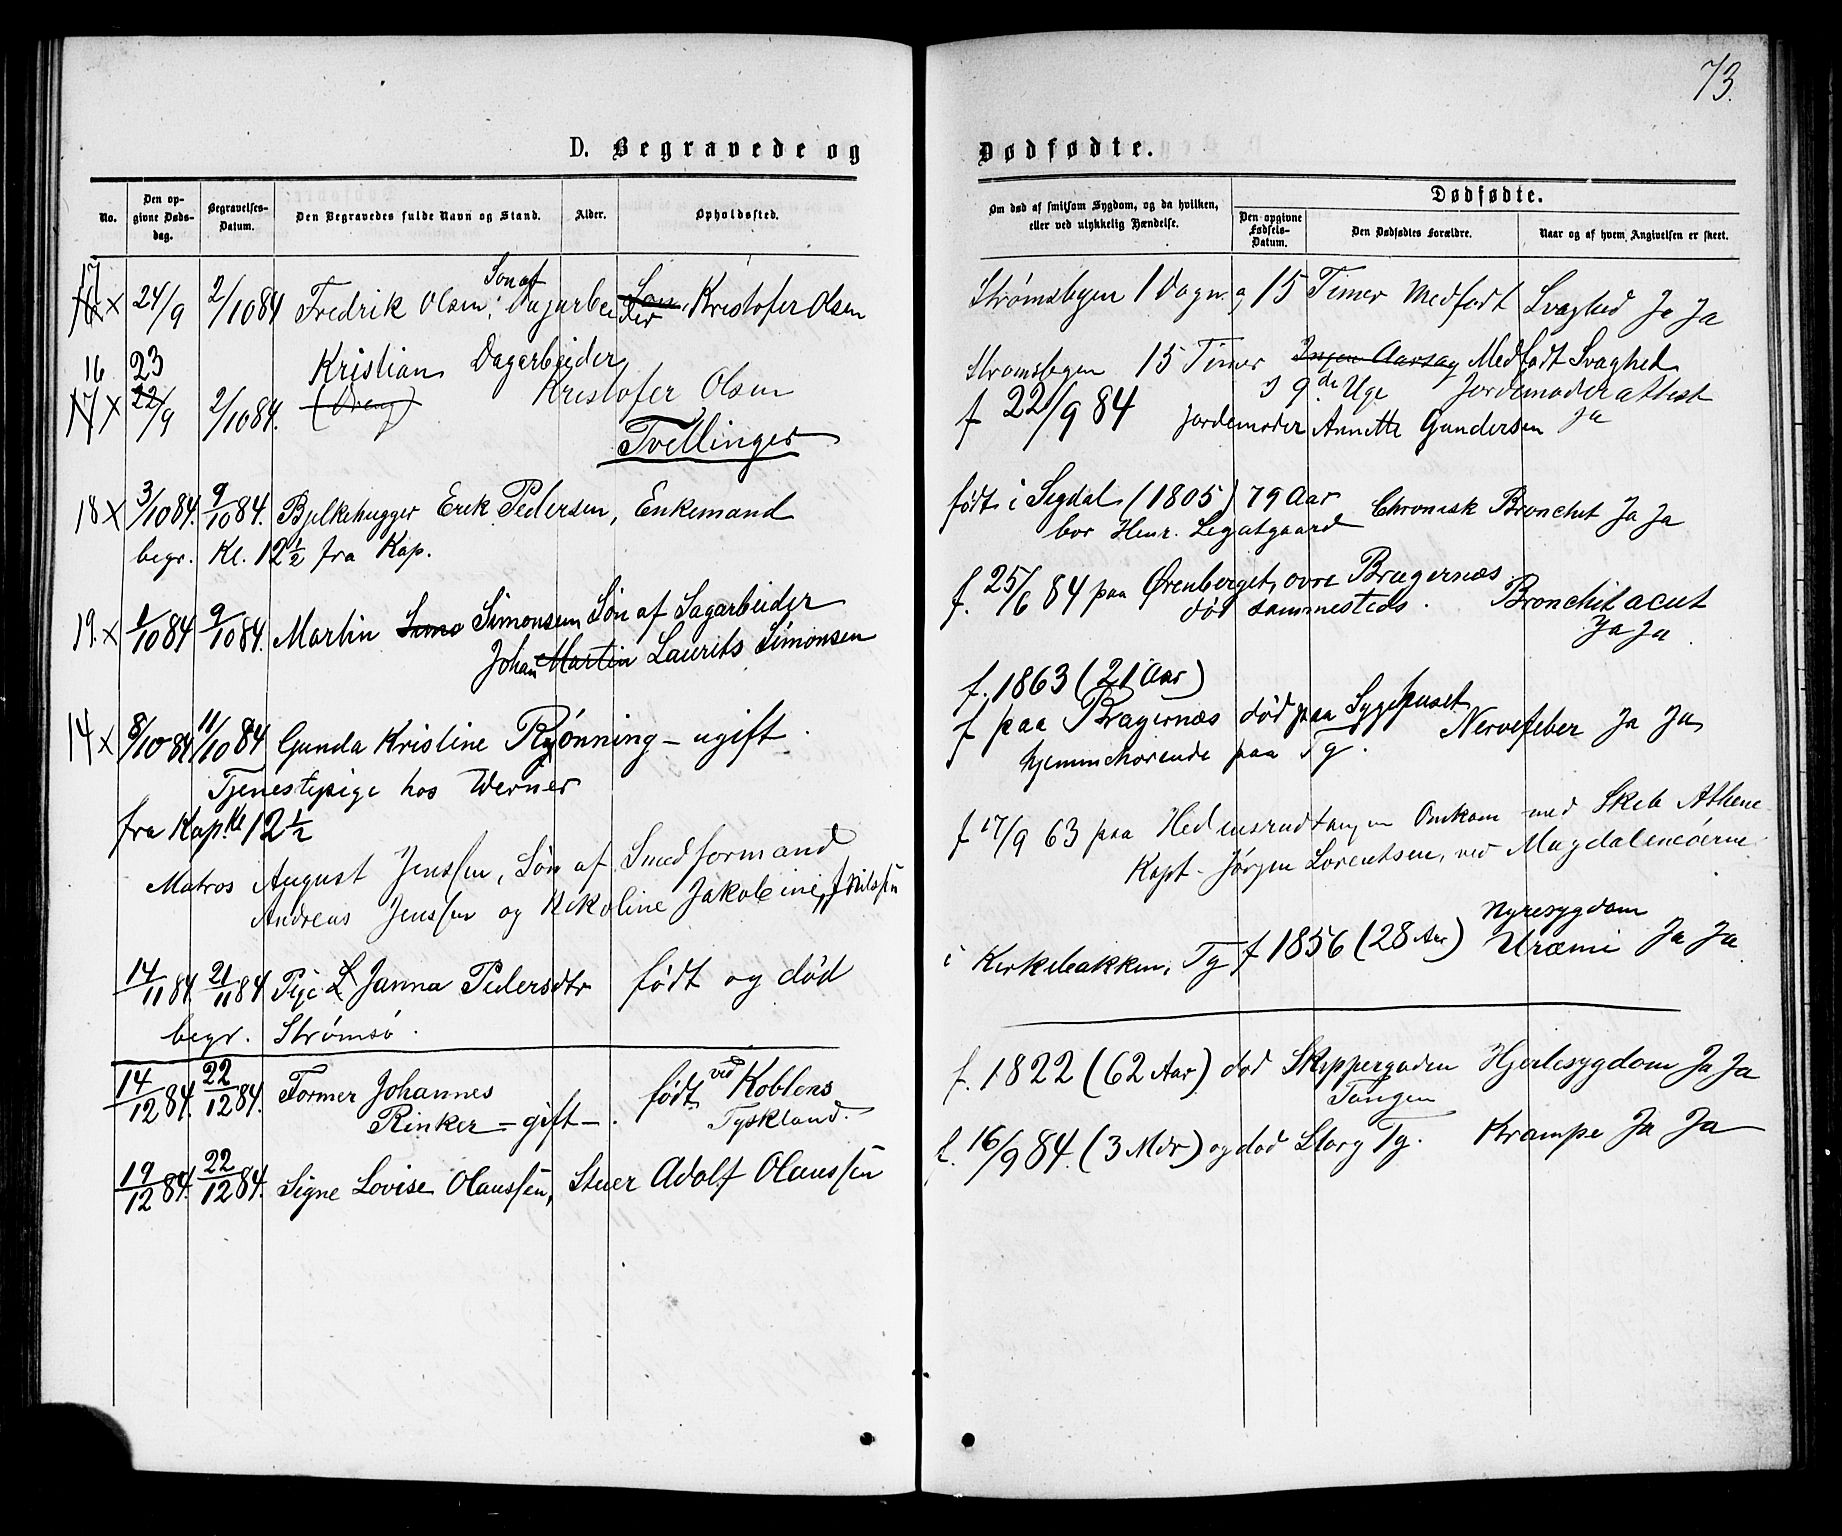 73.
D. Begravede og Dødfødte.
No.
Den opgivne Dødsdag.
Begravelses-Datum.
Den Begravedes fulde Navn og Stand.
Alder.
Opholdssted.
Om død af smitsom Sygdom, og da hvilken, eller ved ulykkelig Hændelse.
Dødfødte.
Den opgivne Fødsels-Datum.
Den Dødfødtes Forældre.
Naar og af hvem Angivelsen er skeet.
17 16 x 24/9 2/10 84 Fredrik Olsen, Søn af Dagarbeider Søn Kristofer Olsen
Strømsbyen 1 Dagn og 15 Timer Medfødt Svaghed Ja Ja
16 23
17 x 22/9 2/10 84. Kristian (Dreng) Dagarbeider
Kristofer Olsen
Tvillinger
Strømsbyen 15 Timer Ingen Aarsag Medfødt Svaghed
f 22/9 84 i 9de Uge Jordemoderattest
Jordemoder Annette Gundersen ja
18 x 3/10 84. 9/10 84. Bjelkehugger Erik Pedersen, Enkemand
begr. Kl. 12 1/2 fra Kap.
født i Sigdal (1805) 79 Aar Chronisk Bronchit Ja Ja
bor Henr. Legatgaard
19. x 1/10 84 9/10 84. Martin Simo Simonsen Søn af Sagarbeider
Johan Martin Laurits Simonsen
f. 25/6 84 paa Ørenberget, øvre Bragernæs
død sammesteds. Bronchit acut
Ja Ja.
14 x 8/10 84 11/10 84 Gunda Kristine Rønning - ugift.
Tjenestepige hos Werner
fra Kap. Kl 12 1/2
f. 1863 (21 Aar)
f paa Bragernæs død paa Sygehuset
hjemmehørende paa Tg. Nervefeber Ja Ja
Matros August Jenssen, Søn af Smedformand
Andreas Jenssen og Nikoline Jakobine f. Nilssen
f 17/9 63 paa Hedensrudtangen Omkom med Skib Athene
Kapt. Jørgen Lorentsen, ved Magdalenøerne
14/11 84 21/11 84 Pige L Janna Pedersdtr født og død
begr. Strømsø.
i Kirkebakken, Tg f 1856 (28 Aar) Nyresygdom
Uræmi Ja Ja
14/12 84. 22/12 84. Former Johannes
Rinker - gift -. født ved Koblens
Tyskland.
f. 1822 (62 Aar) død Skippergaden Hjertesygdom Ja Ja
Tangen
19/12 84. 22/12 84. Signe Lovise Olaussen, Stuer Adolf Olaussen
f. 16/9 84. (3 Mdr) og død Storg Tg. Krampe Ja Ja